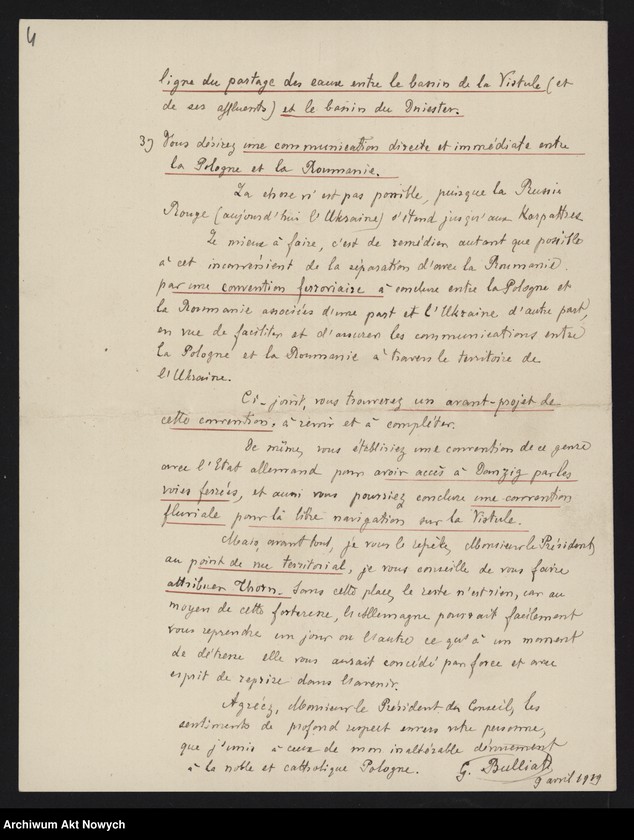 4
ligne du partage des eaux entre le bassin de la Vistule (et
de ses affluents) et le bassin du Dniester.
3) Vous désirez une communication directe et immédiate entre
la Pologne et la Roumanie.
La chose n'est pas possible, puisque la Russie
Rouge (aujourd'hui l'Ukraine) s'étend jusqu'aux Karpathes.
Le mieux à faire, c'est de remédier autant que possible
à cet inconvénient de la séparation d'avec la Roumanie
par une convention ferroviaire à conclure entre la Pologne et
la Roumanie associées d'une part et l'Ukraine d'autre part,
en vue de faciliter et d'assurer les communications entre
la Pologne et la Roumanie à travers le territoire de
l'Ukraine.
Ci-joint, vous trouverez un avant-projet de
cette convention, à revoir et à compléter.
De même, vous établiriez une convention de ce genre
avec l'Etat allemand pour avoir accès à Danzig par les
voies ferrées, et aussi vous pourriez conclure une convention
fluviale pour la libre navigation sur la Vistule.
Mais, avant tout, je vous le répète, Monsieur le Président,
au point de vue territorial, je vous conseille de vous faire
attribuer Thorn. Sans cette place, le reste n'est rien, car au
moyen de cette forteresse, l'Allemagne pourrait facilement
vous reprendre un jour ou l'autre ce qu'à un moment
de détresse elle vous aurait concédé par force et avec
esprit de reprise dans l'avenir.
Agréez, Monsieur le Président du Conseil, les
sentiments de profond respect envers votre personne,
que j'unis à ceux de mon inaltérable dévouement
à la noble et catholique Pologne.
G. Bulliat
9 avril 1919
Archiwum Akt Nowych